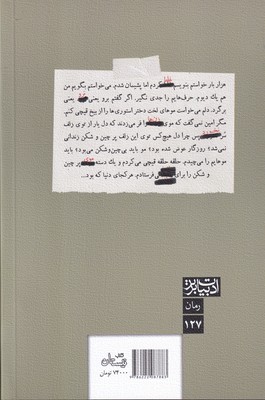 هزار بار خواستم بنویسم
کردم اما پشیمان شدم. می‌خواستم بگویم من
هم یك دیوم. حرف‌هایم را جدی نگیر. اگر گفتم برو یعنی
یعنی
برگرد. دلم می‌خواست موهای لخت دختر استوری‌ها را از بیخ قیچی کنم.
مگر امین نمی‌گفت که موی
فر می‌زدند که دل یار از توی زلف
چرا دل هیچ‌کس توی این زلف پر چین و شکن زندانی
نمی‌شد؟ روزگار عوض شده بود؟ مو باید بی‌چین‌وشکن می‌بود؟ باید
موهایم را می‌چیدم. حلقه حلقه قیچی می‌کردم و یك دسته
پر چین
و شکن را برای
می‌فرستادم. هرکجای دنیا که بود...
ادبیات برتر
رمان
۱۲۷
کتاب
نیستان
۷۴۰۰۰ تومان